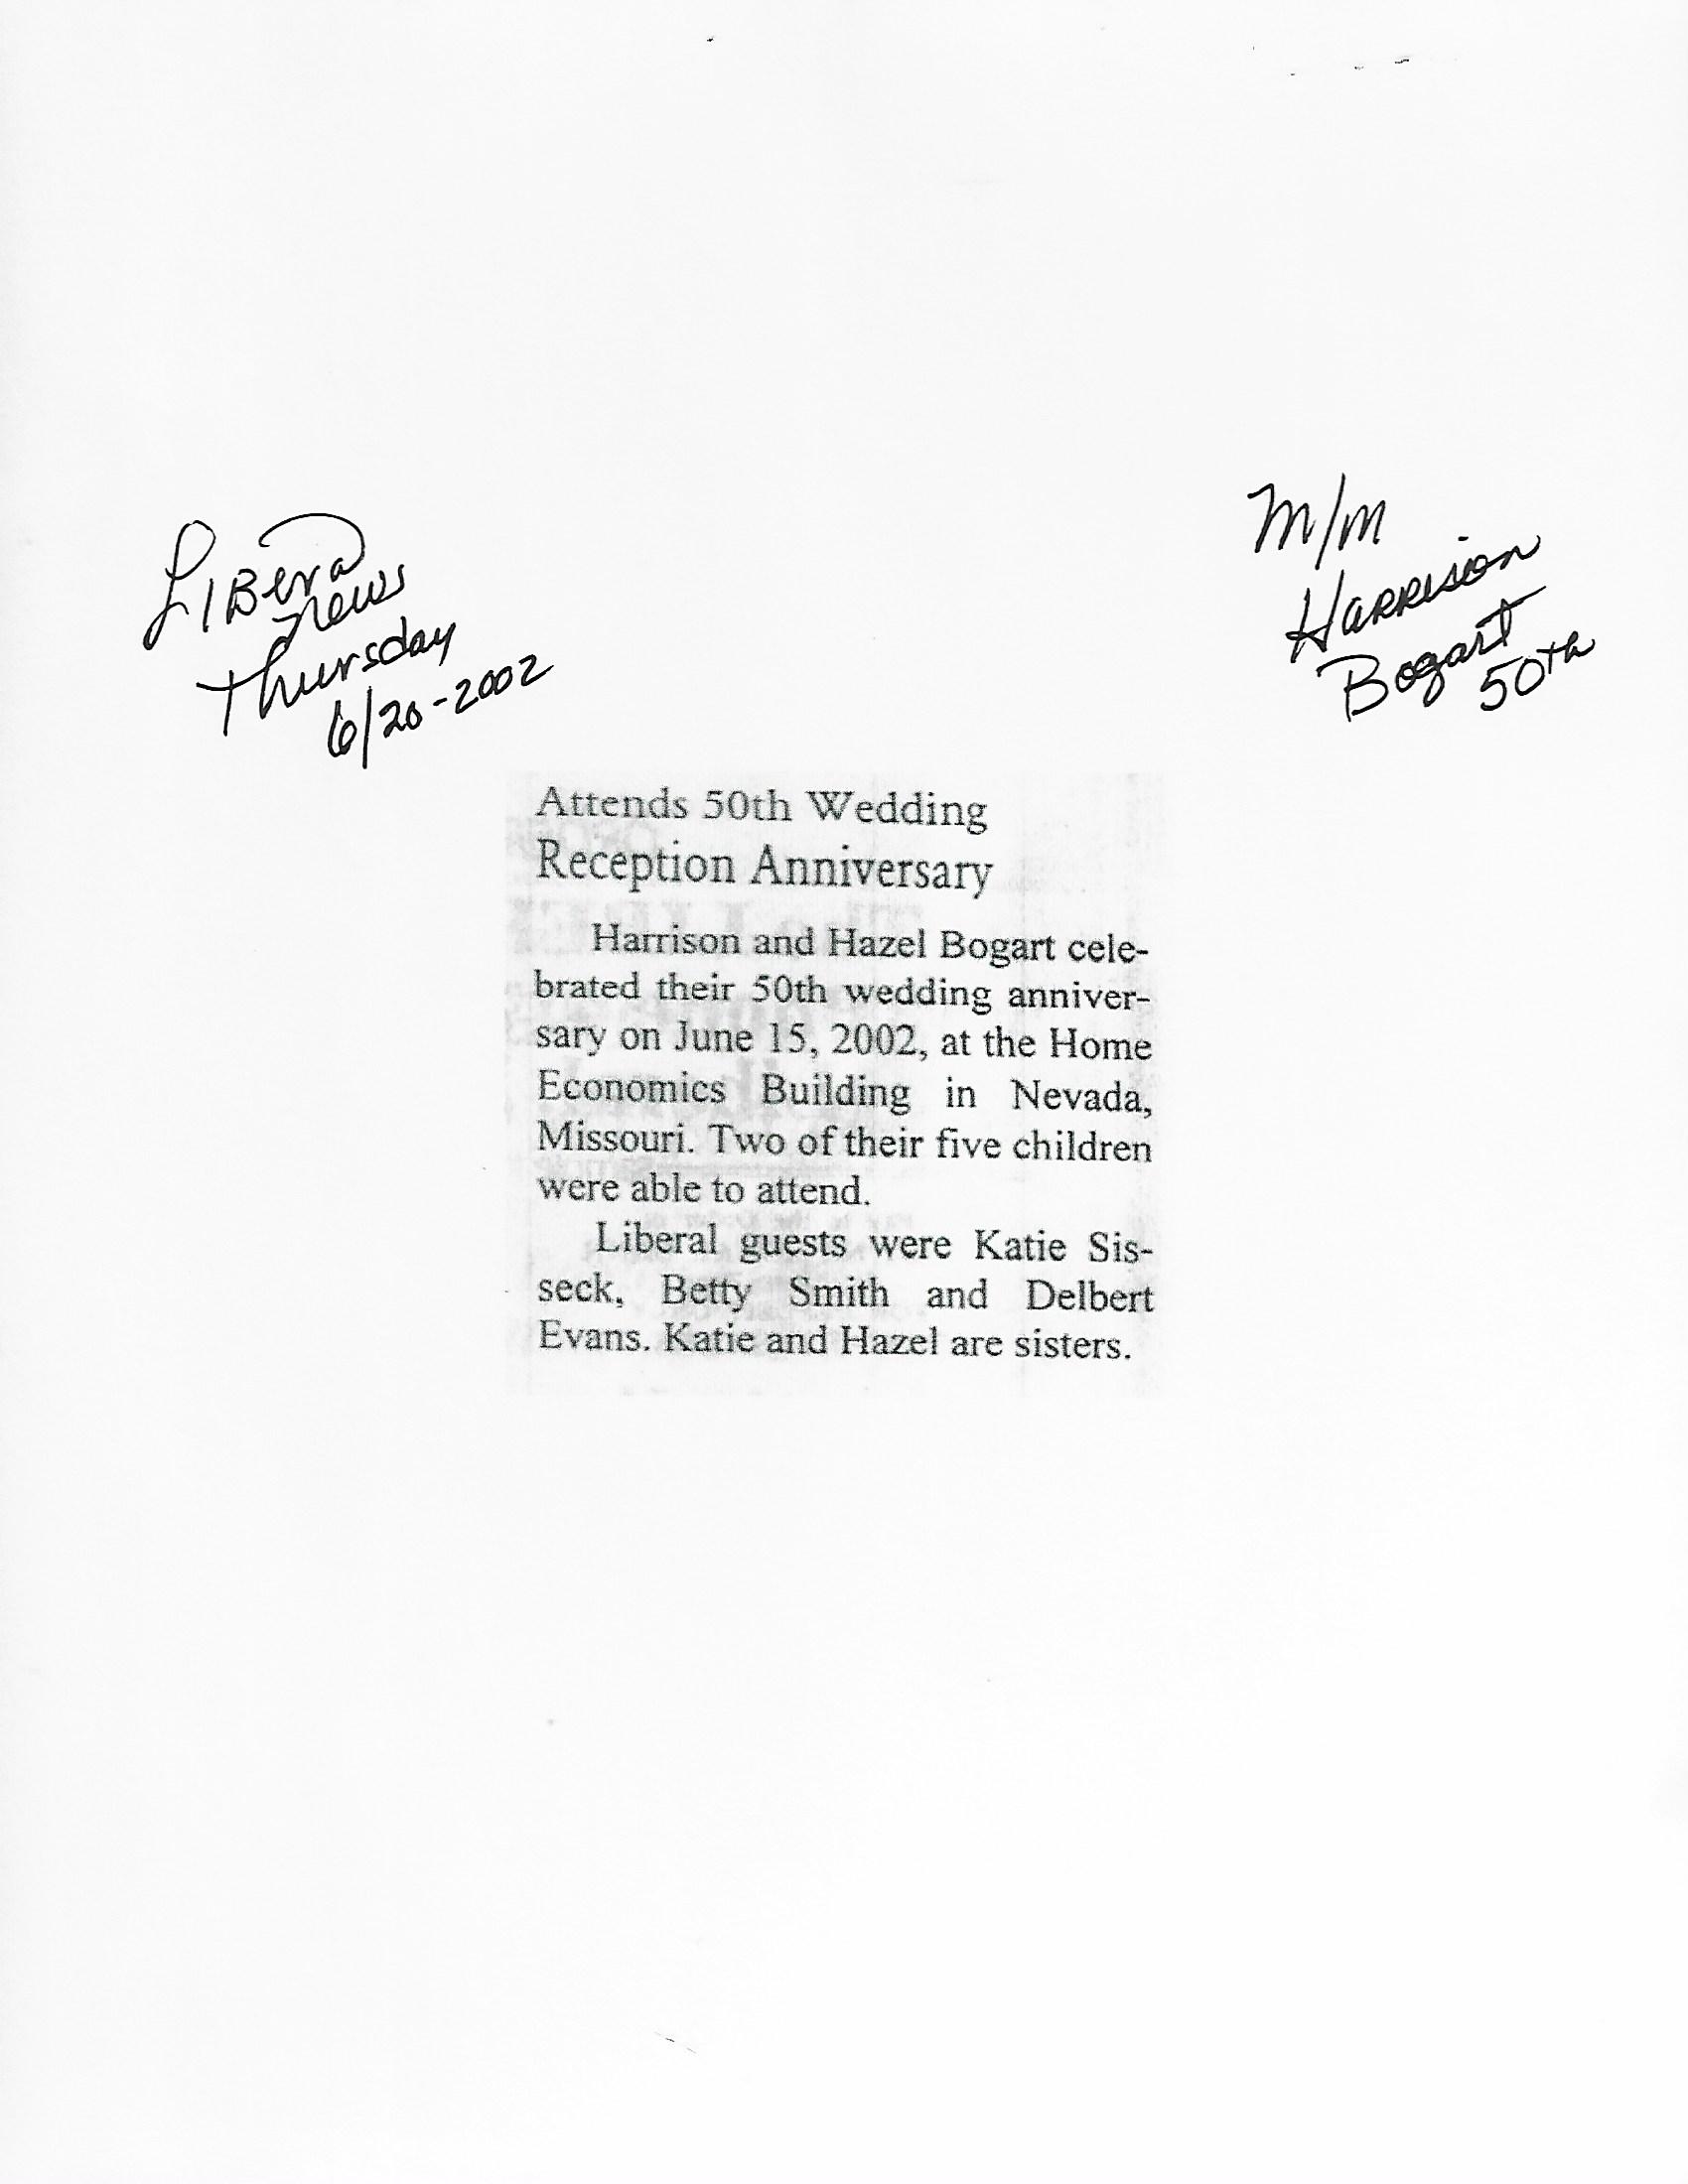 LIBeral
News
Thursday
6/20-2002
M/M
HARRISON
Bogart
50th
Attends 50th Wedding
Reception Anniversary
Harrison and Hazel Bogart cele-
brated their 50th wedding anniver-
sary on June 15, 2002, at the Home
Economics Building in Nevada,
Missouri. Two of their five children
were able to attend.
Liberal guests were Katie Sis-
seck, Betty Smith and Delbert
Evans. Katie and Hazel are sisters.